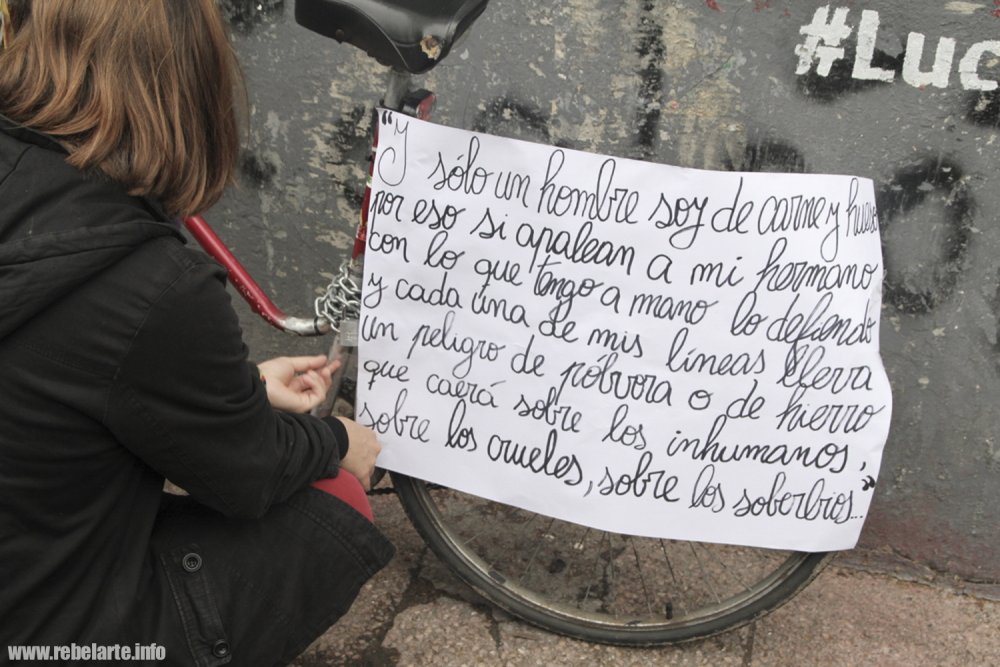 #Luc
"Y sólo un hombre soy de carne y hueso
por eso si apalean a mi hermano
con lo que tengo a mano lo defiendo
y cada una de mis líneas lleva
un peligro de pólvora o de hierro
que caerá sobre los inhumanos,
sobre los crueles, sobre los soberbios..."
www.rebelarte.info